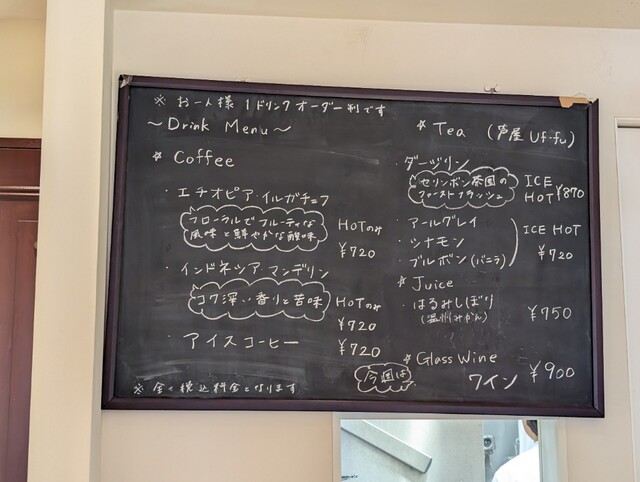 ※ お一人様 1ドリンクオーダー制です
～Drink Menu～
☆ Coffee
・エチオピア・イルガチェフ
フローラルでフルーティな
風味と鮮やかな酸味
HOTのみ
¥720
・インドネシア・マンデリン
コク深い香りと苦味
HOTのみ
¥720
・アイスコーヒー ¥720
※ 全て税込料金となります
☆ Tea (芦屋 Uf-fu)
・ダージリン
セリンボン茶園の
ファーストフラッシュ
ICE
HOT ¥870
・アールグレイ
・シナモン
・ブルボン(バニラ)
ICE HOT
¥720
☆ Juice
・はるみしぼり ¥750
(温州みかん)
☆ Glass Wine
今週は
ワイン ¥900